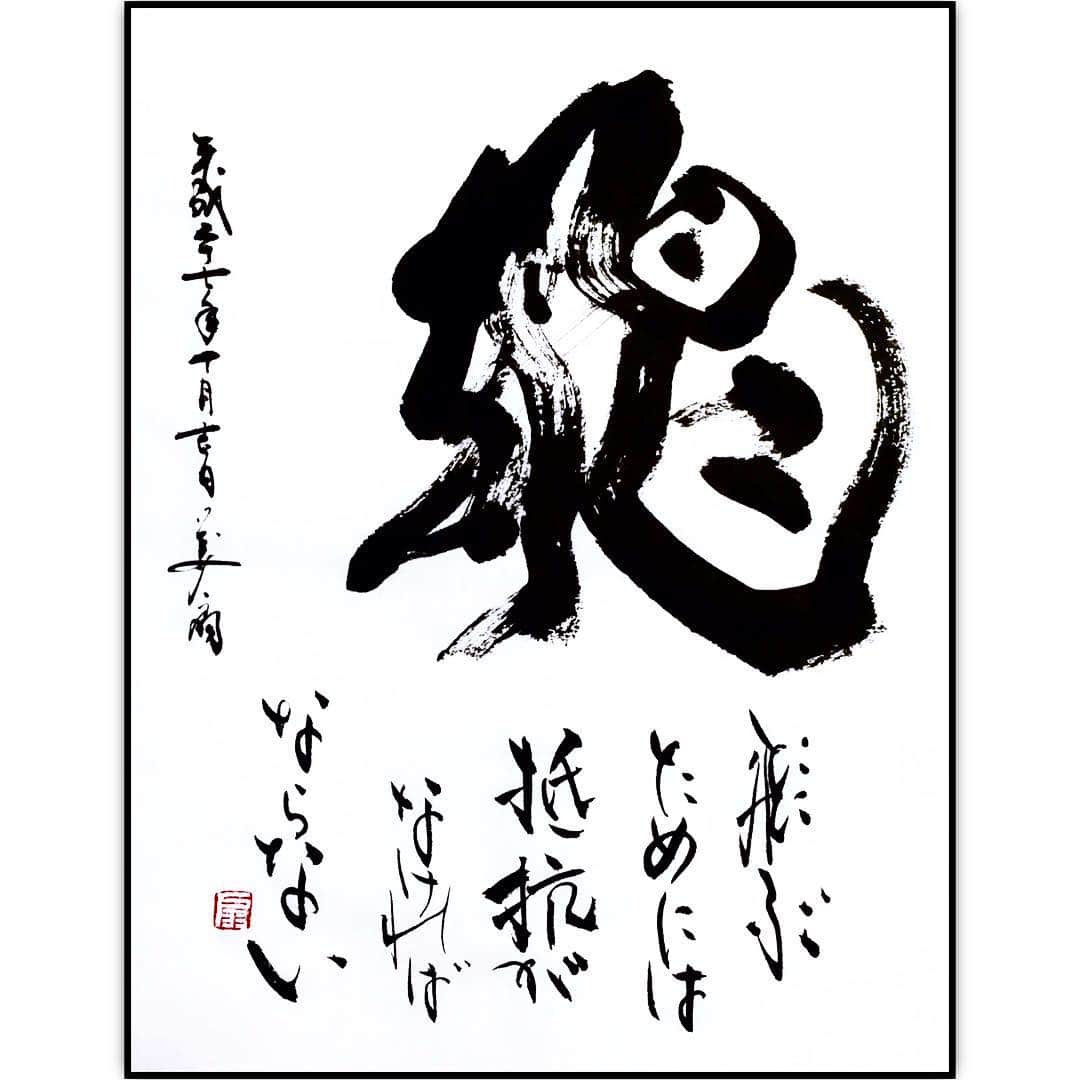 飛
飛ぶ
ためには
抵抗が
なければ
ならない
平成廿七年十月吉日